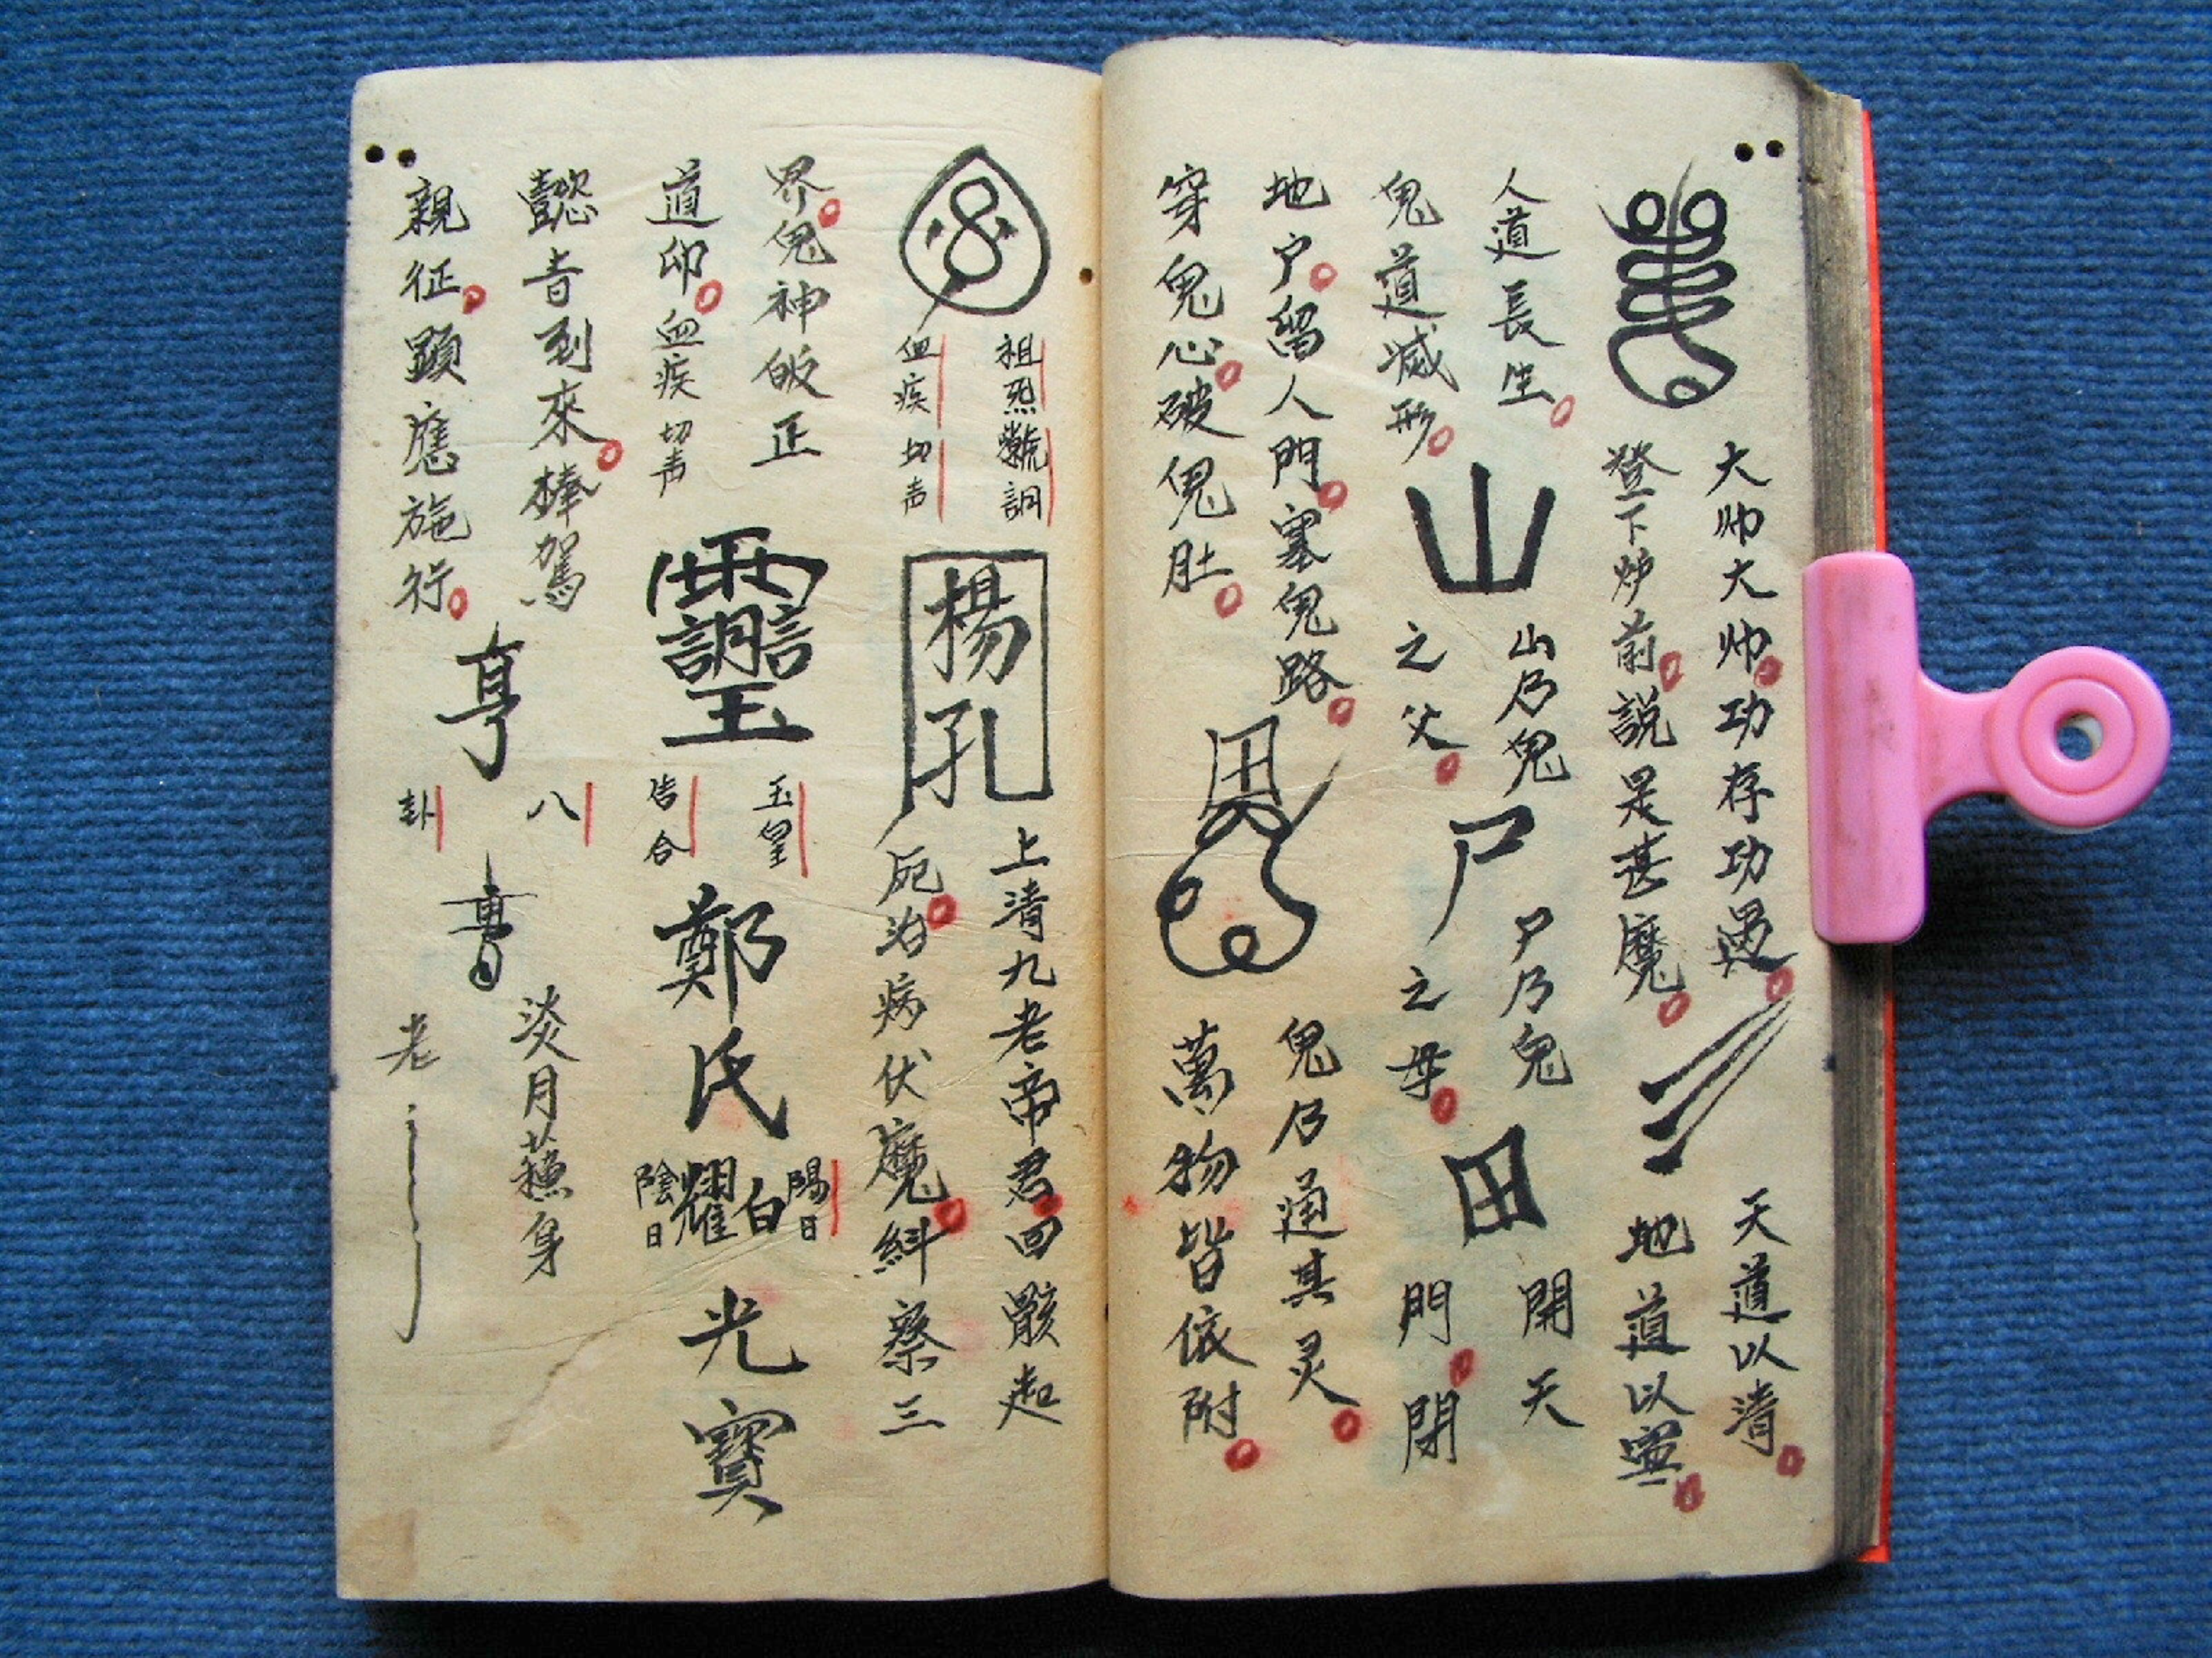 大帅大帅功存功過
登下炉前説是甚魔
天道以清
地道以寧
人道長生
鬼道滅形
山
山乃鬼
之父
尸
尸乃鬼
之母
田
開天
門閉
地户留人門塞鬼路
穿鬼心破鬼肚
鬼乃通其灵
萬物皆依附
祖炁 調
血疾 切声
楊孔
上清九老帝君回骸起
死治病伏魔糾察三
界鬼神皈正
道印血疾切声
玉皇
告合
鄭氏
陽日
白
耀
陰日
光寶
懿旨到來棒駕
親征顕應施行
八
卦
淡月蘓身
老